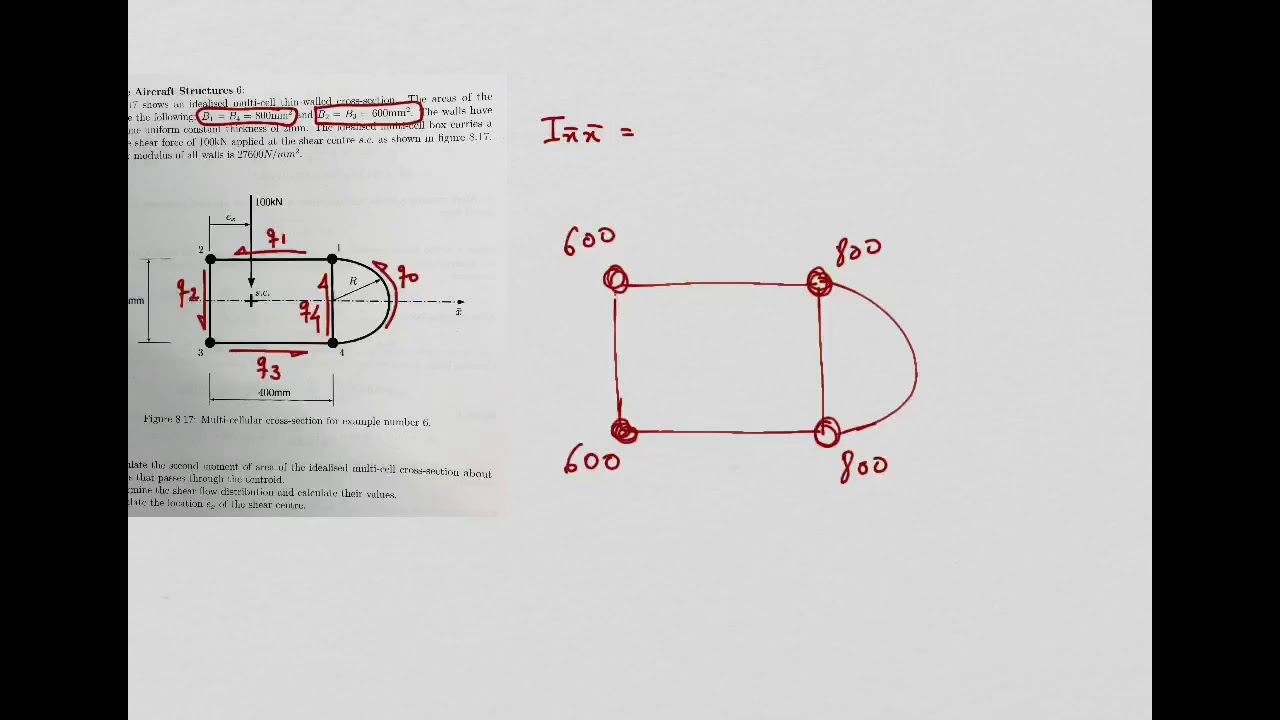 Aircraft Structures 6:
17 shows an idealised multi-cell thin-walled cross-section. The areas of the
the following: B₁ = B₄ = 800mm² and B₂ = B₃ = 600mm². The walls have
uniform constant thickness of 2mm. The idealised multi-cell box carries a
shear force of 100kN applied at the shear centre s.c. as shown in figure 8.17.
modulus of all walls is 27600N/mm².
I x̄ x̄ =
100kN
eₓ
600
800
2
q1
1
q2
s.c.
R
q0
mm
q4
x̄
3
q3
4
400mm
600
800
Figure 8.17: Multi-cellular cross-section for example number 6.
the second moment of area of the idealised multi-cell cross-section about
that passes through the centroid.
the shear flow distribution and calculate their values.
the location eₓ of the shear centre.